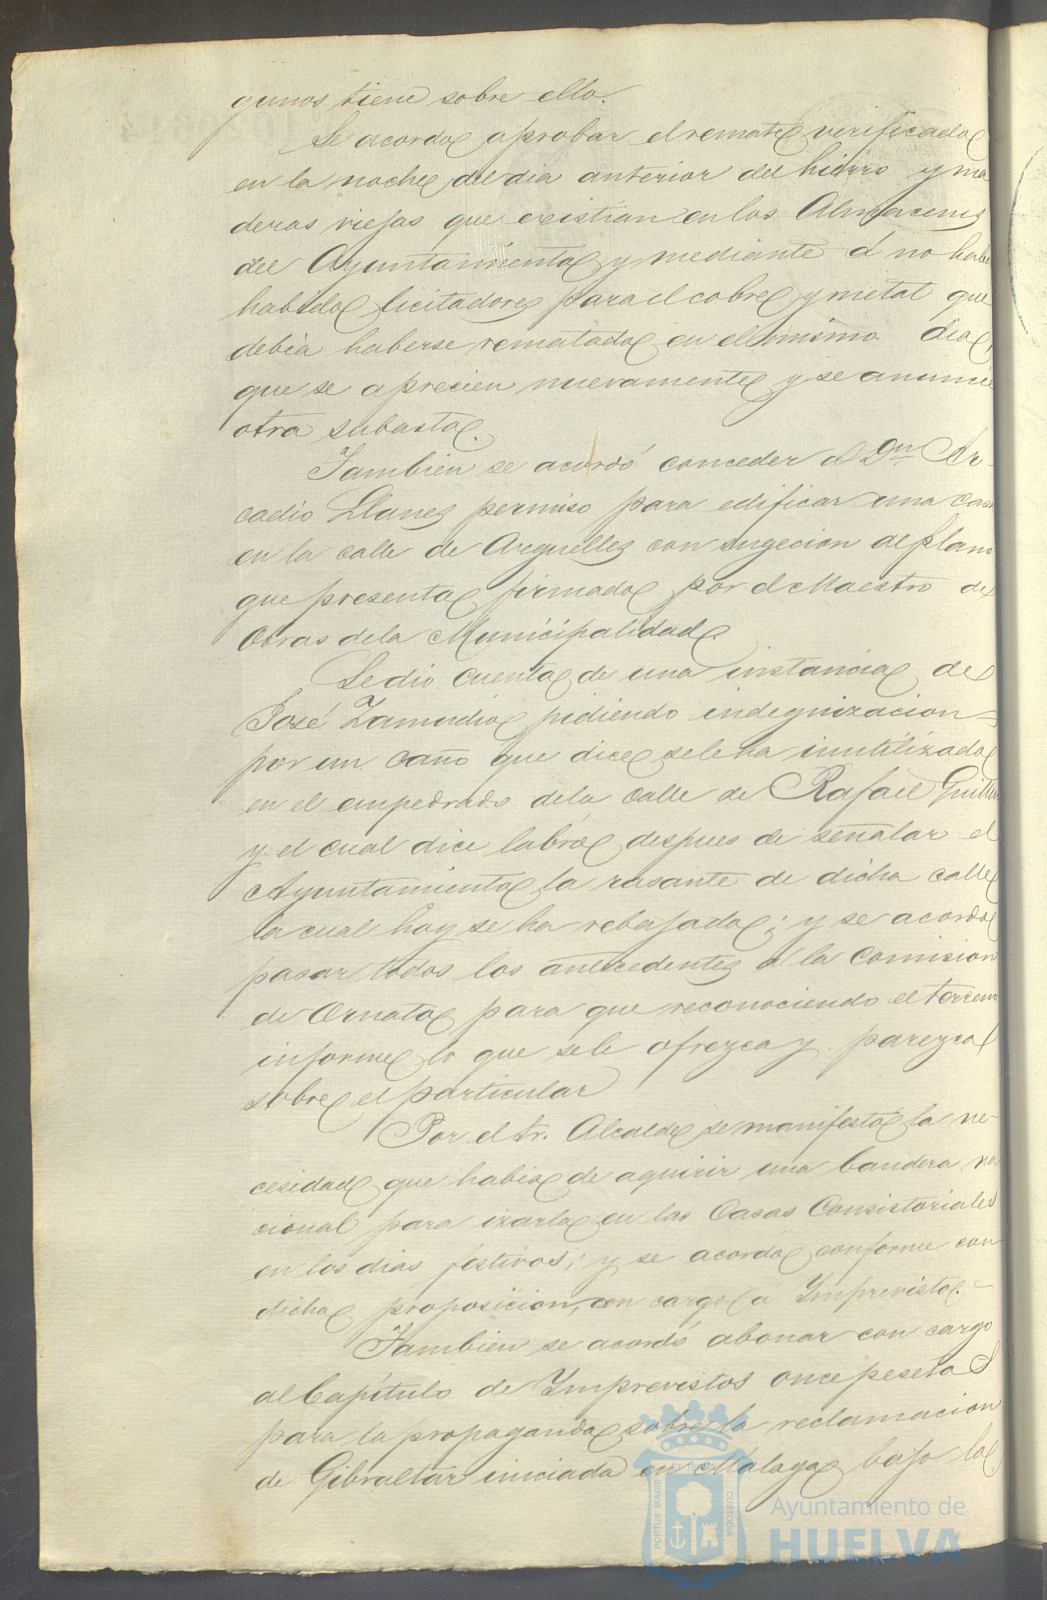 gunos tiene sobre ello.
Se acordo aprobar el remate verificado
en la noche del dia anterior del hierro y ma
deras viejas que existian en los Almacenes
del Ayuntamiento y mediante á no haber
habido licitadores para el cobre y metal que
debia haberse rematado en el mismo dia,
que se aprecien nuevamente y se anuncie
otra subasta.
Tambien se acordó conceder á Dn Ar-
cadio Llanes permiso para edificar una casa
en la calle de Arguelles con sugecion al plano
que presenta firmado por el Maestro de
Obras de la Municipalidad.
Se dio cuenta de una instancia de
José Zamudio pidiendo indegnizacion
por un caño que dice se le ha inutilizado
en el empedrado de la calle de Rafael Guillen
y el cual dice labró despues de señalar el
Ayuntamiento la rasante de dicha calle
la cual hoy se ha rebajado; y se acordo
pasar todos los antecedentes á la Comision
de Ornato para que reconociendo el terreno
informe lo que se le ofrezca y parezca
sobre el particular
Por el Sr. Alcalde se manifestó la ne-
cesidad que habia de aquirir una bandera na
cional para izarla en las Casas Consistoriales
en los dias festivos; y se acordó conforme con
dicha proposicion, con cargo á Imprevisto.
Tambien se acordó abonar con cargo
al Capítulo de Imprevistos once pesetas
para la propaganda sobre la reclamacion
de Gibraltar iniciada en Málaga bajo la
PORTUS MARIS
CUSTODIA
Ayuntamiento de
HUELVA